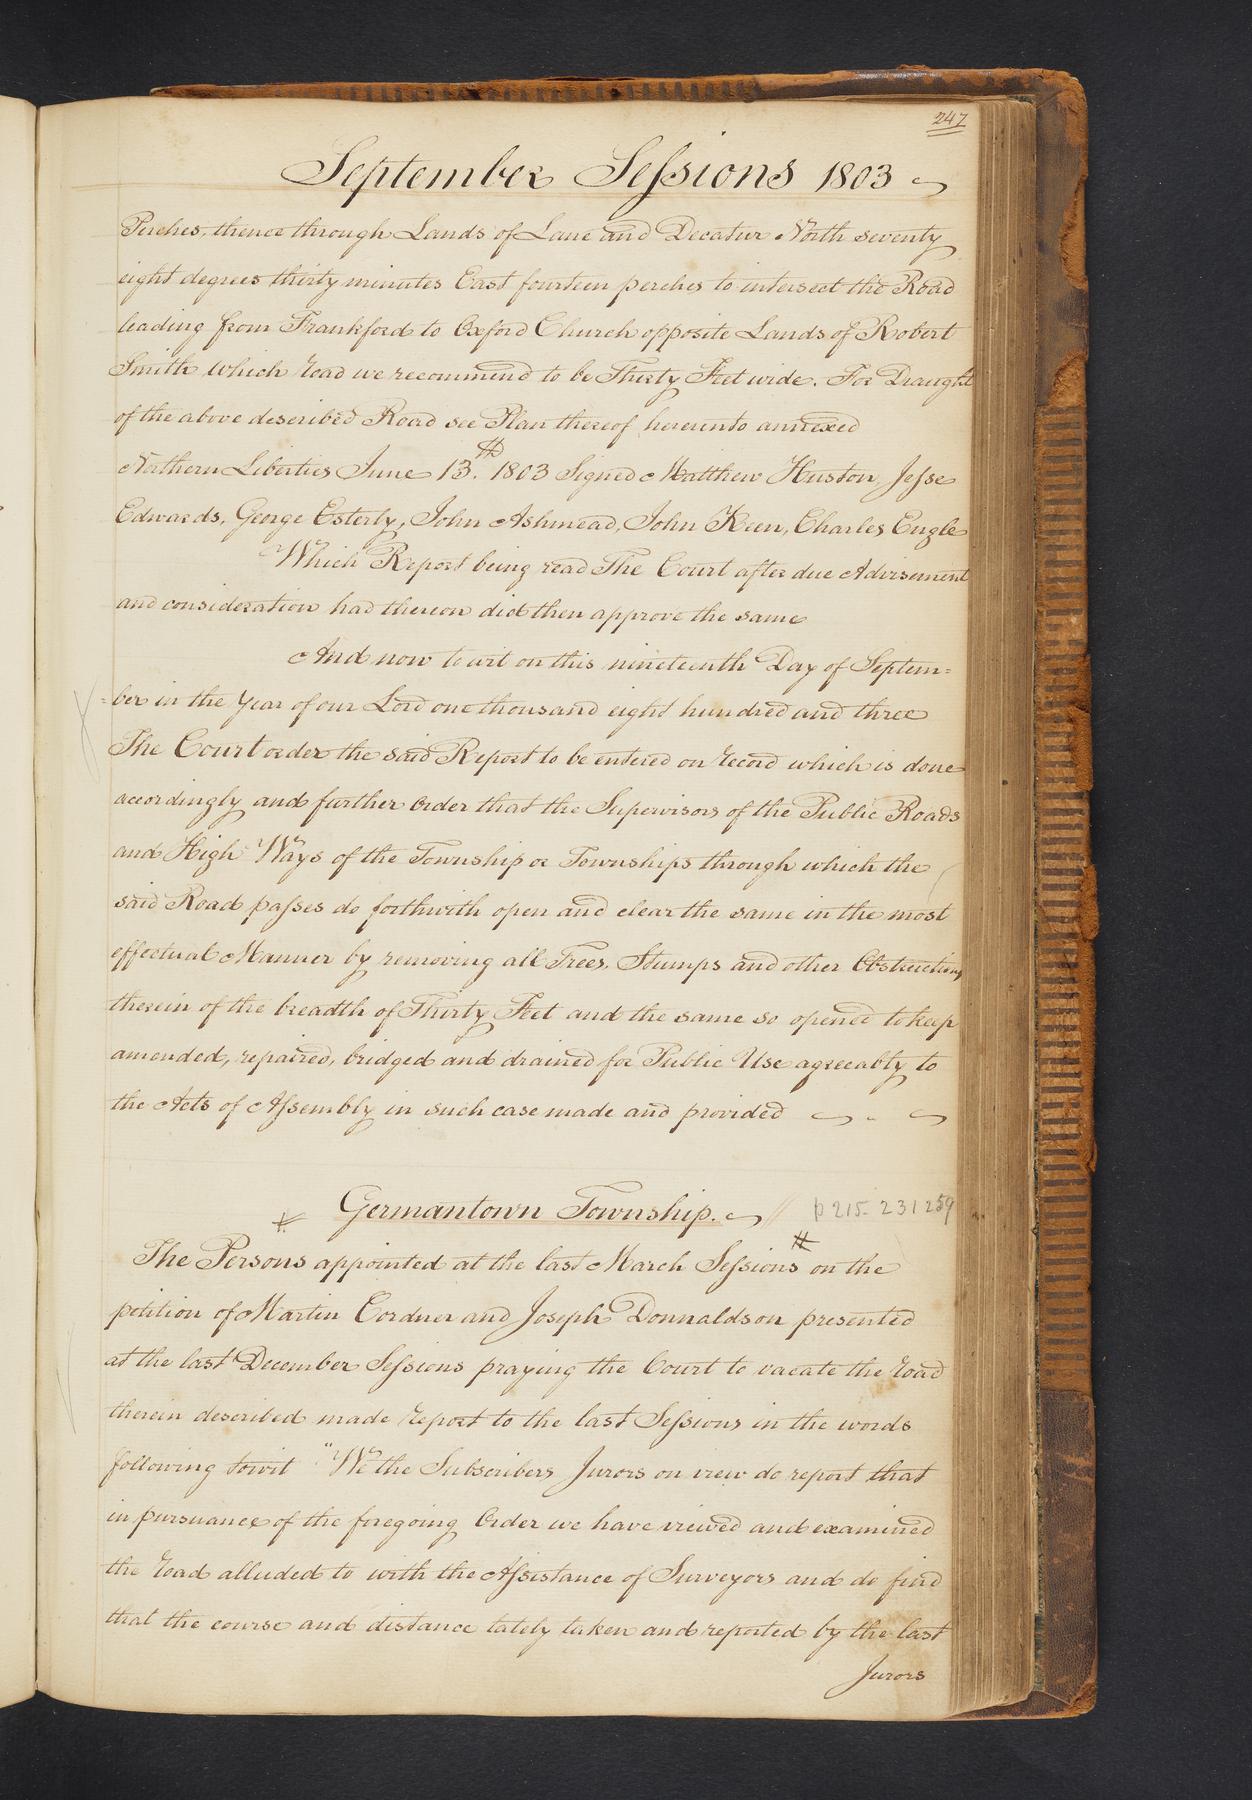 247
September Sessions 1803
Perches, thence through Lands of Lane and Decatur North seventy
eight degrees thirty minutes East fourteen perches to intersect the Road
leading from Frankford to Oxford Church opposite Lands of Robert
Smith which road we recommend to be Thirty Feet wide. For Draught
of the above described Road see Plan thereof hereunto annexed
Northern Liberties June 13.th 1803 Signed Matthew Huston, Jesse
Edwards, George Esterly, John Ashmead, John Keen, Charles Engle
Which Report being read The Court after due Advisement
and consideration had thereon did then approve the same
And now to wit on this nineteenth Day of Septem=
=ber in the Year of our Lord one thousand eight hundred and three
The Court order the said Report to be entered on record which is done
accordingly and further Order that the Supervisors of the Public Roads
and High Ways of the Township or Townships through which the
said Road passes do forthwith open and clear the same in the most
effectual Manner by removing all Trees, Stumps and other Obstructions
therein of the breadth of Thirty Feet and the same so opened to keep
amended, repaired, bridged and drained for Public Use agreeably to
the Acts of Assembly in such case made and provided
Germantown Township. p 215 231 259
The Persons appointed at the last March Sessions # on the
petition of Martin Cordner and Joseph Donnaldson presented
at the last December Sessions praying the Court to vacate the road
therein described made report to the last Sessions in the words
following towit "We the Subscribers Jurors on view do report that
in pursuance of the foregoing Order we have viewed and examined
the road alluded to with the Assistance of Surveyors and do find
that the course and distance lately taken and reported by the last
Jurors